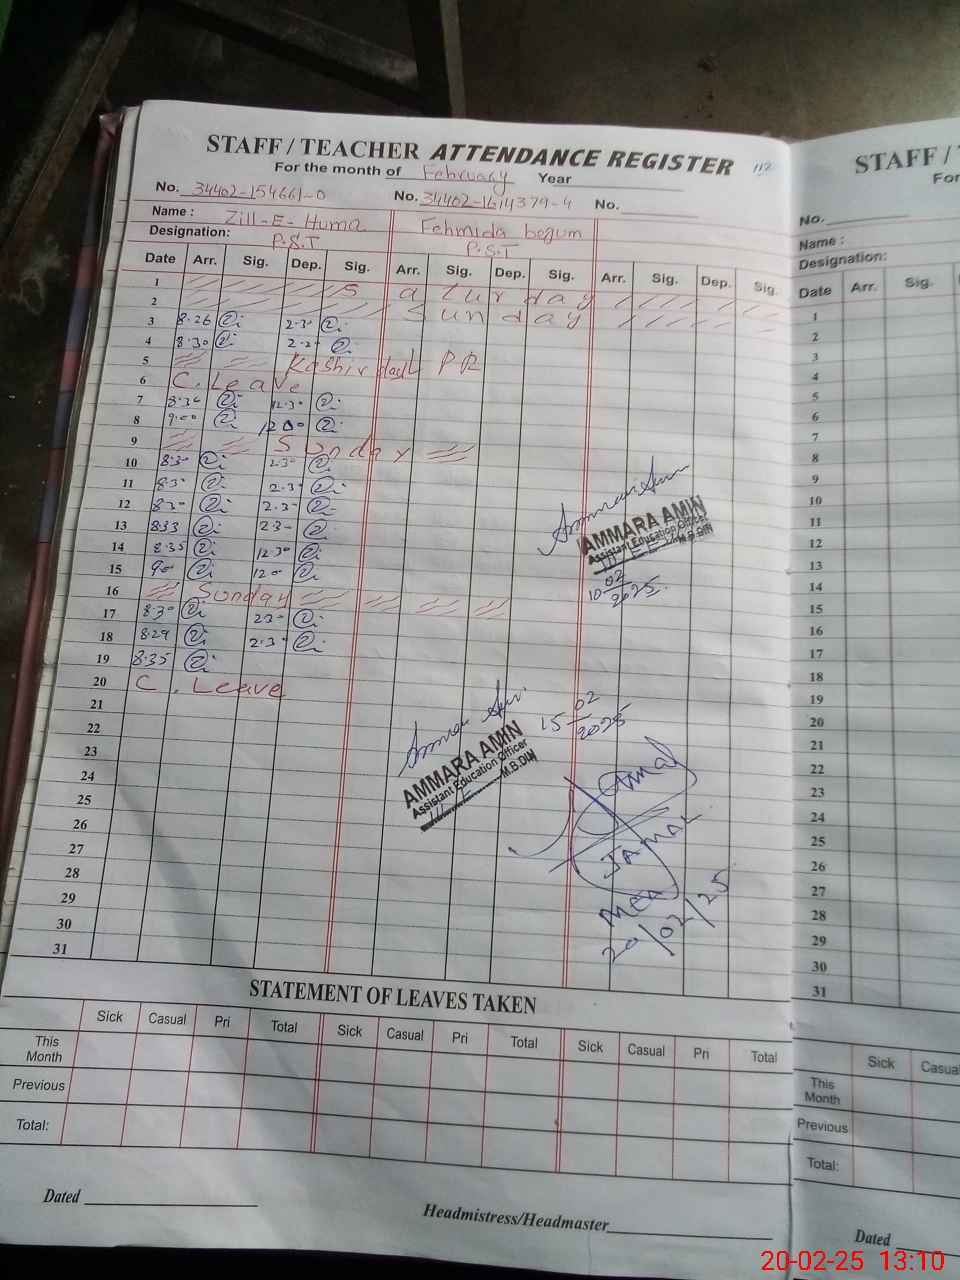 STAFF / TEACHER ATTENDANCE REGISTER 112
For the month of February Year
No. 34402-154661-0 No. 34402-1614379-4 No.
Name : Zill-E-Huma Fehmida begum
Designation: P.S.T P.S.T
Date Arr. Sig. Dep. Sig. Arr. Sig. Dep. Sig. Arr. Sig. Dep. Sig.
1 Saturday
2 Sunday
3 8.26 2.30
4 8.30
5 Kashir day
6 C. Leave
7 8.30 12.30
8 9.00 1200
9 Sunday
10 8.30 2.30
11 8.30 2.30
12 8.30 2.30
13 833 230
14 8.35 12.30
15 900 1200
16 Sunday
17 8.30 230
18 8.29 2.30
19 8.35
20 C. Leave
21
22
23
24
25
26
27
28
29
30
31
AMMARA AMIN
Assistant Education Officer
M.B.DIN
10 02 2025
15 02 2025
AMMARA AMIN
Assistant Education Officer
M.B.DIN
JAMAL
MEA
20/02/25
STATEMENT OF LEAVES TAKEN
Sick Casual Pri Total Sick Casual Pri Total Sick Casual Pri Total
This Month
Previous
Total:
Dated
Headmistress/Headmaster
STAFF /
For
No.
Name :
Designation:
Date Arr. Sig.
1
2
3
4
5
6
7
8
9
10
11
12
13
14
15
16
17
18
19
20
21
22
23
24
25
26
27
28
29
30
31
Sick Casual
This Month
Previous
Total:
Dated
20-02-25 13:10